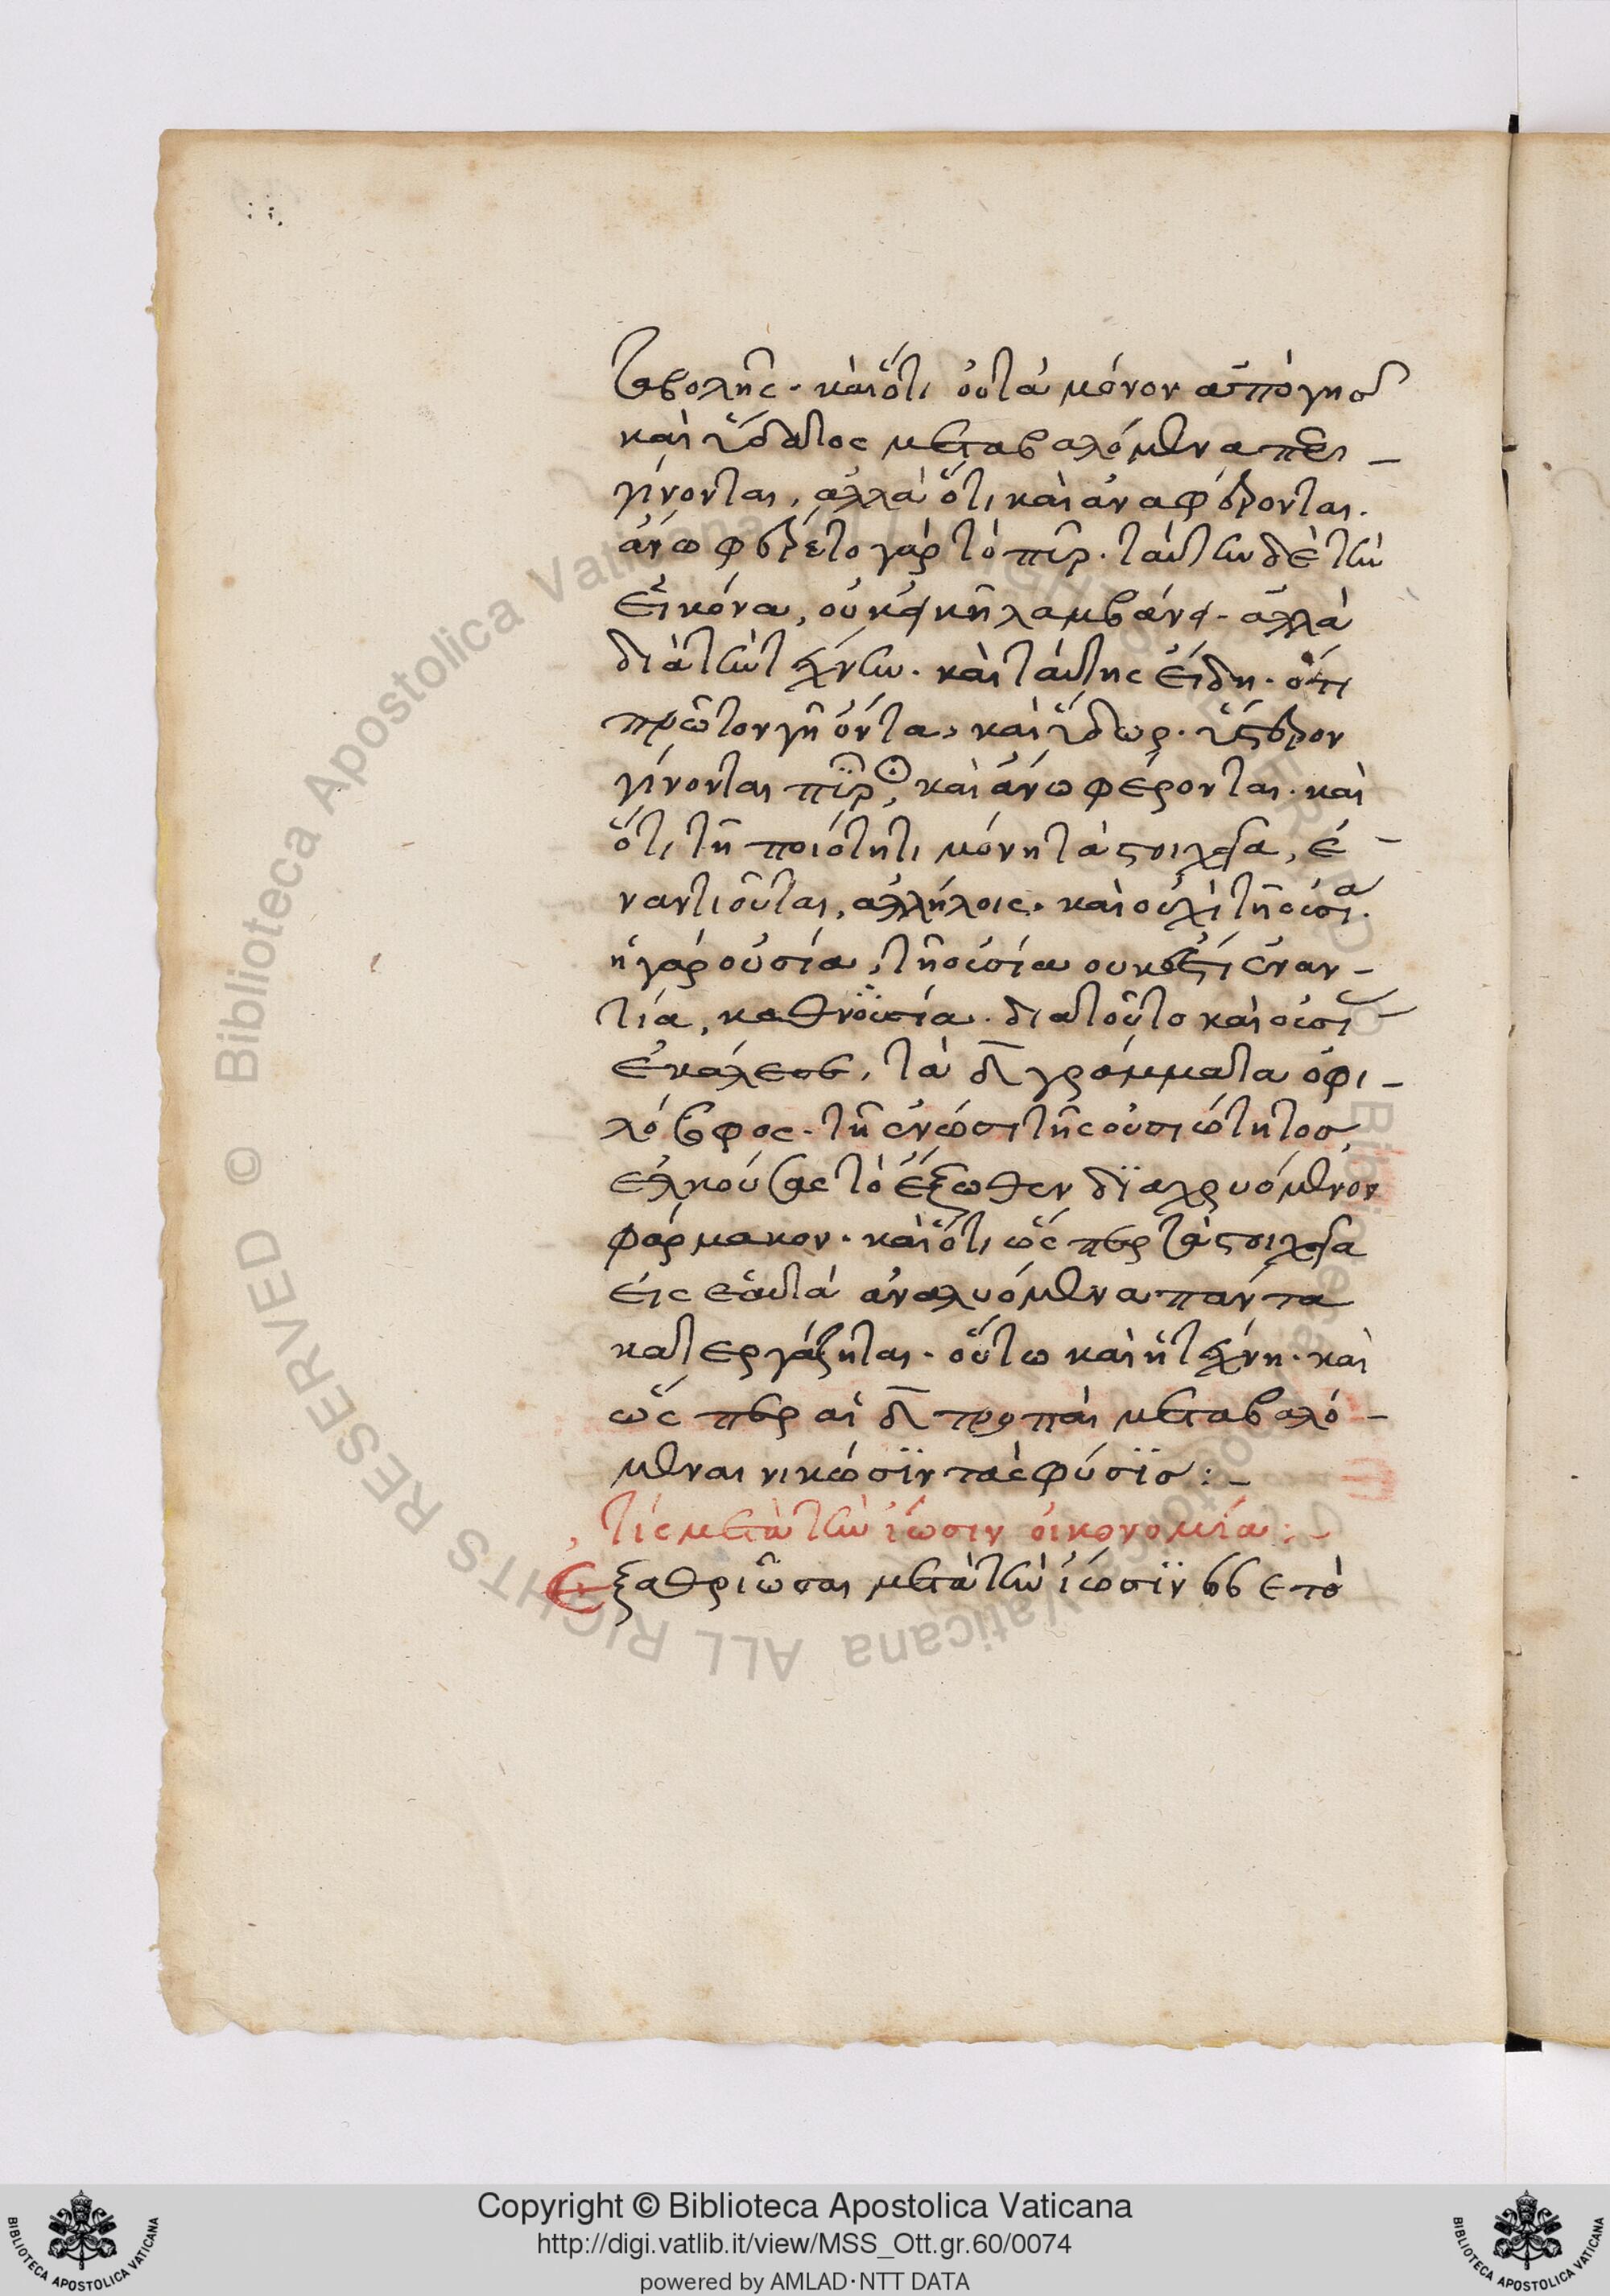 ταβολῆς. καὶ ὅτι οὐ τὰ μόνον ἀπὸ γῆσ
καὶ ὕδατος μεταβαλόμενα περι –
γίνονται, ἀλλὰ ὅτι καὶ ἀναφέρονται.
ἄνω φέρετο γὰρ τὸ πῦρ. ταύτην δὲ τὴν
εἰκόνα, οὐκ εἰκῆ λαμβάνει. ἀλλὰ
διὰ τὴν τέχνην. καὶ ταύτης εἴδη. ὅτι
πρῶτον γῆ ὄντα, καὶ ὕδωρ. ὕστερον
γίνονται πῦρ, καὶ ἄνω φέρονται. καὶ
ὅτι τῆ ποιότητι μόνη τὰ στοιχεῖα, ἐ –
ναντιοῦται, ἀλλήλοις. καὶ οὐχὶ τῆ οὐσία.
ἡ γὰρ οὐσία, τῆ οὐσία ουκ ἔστι ἐναν –
τία, καθὸ οὐσία. διατοῦτο καὶ οὐσίαν
ἐκάλεσε, τὰ δ̅ γράμματα ὁ φι –
λόσοφος. τῆ ἑνώσι τῆς οὐσιώτητοσ
ἑλκούσας τὸ ἔξωθεν διαχρυόμενον
φάρμακον. καὶ ὅτι ὥς περ τὰ στοιχεῖα
εἰς ἑαυτὰ ἀναλυόμενα πάντα
κατεργάζηται. οὕτω καὶ ἡ τέχνη. καὶ
ὥς περ αἱ δ̅ τροπαὶ μεταβαλό –
μεναι νικώσϊν τὰς φύσϊσ : –
τίς μετὰ τὴν ἴωσιν οἰκονομία : –
Εξαθριῶσαι μετὰ τὴν ἰώσϊν ἐστὶ τὸ
Copyright © Biblioteca Apostolica Vaticana
http://digi.vatlib.it/view/MSS_Ott.gr.60/0074
powered by AMLAD·NTT DATA
BIBLIOTECA APOSTOLICA VATICANA
BIBLIOTECA APOSTOLICA VATICANA
© Biblioteca Apostolica Vaticana ALL RIGHTS RESERVED